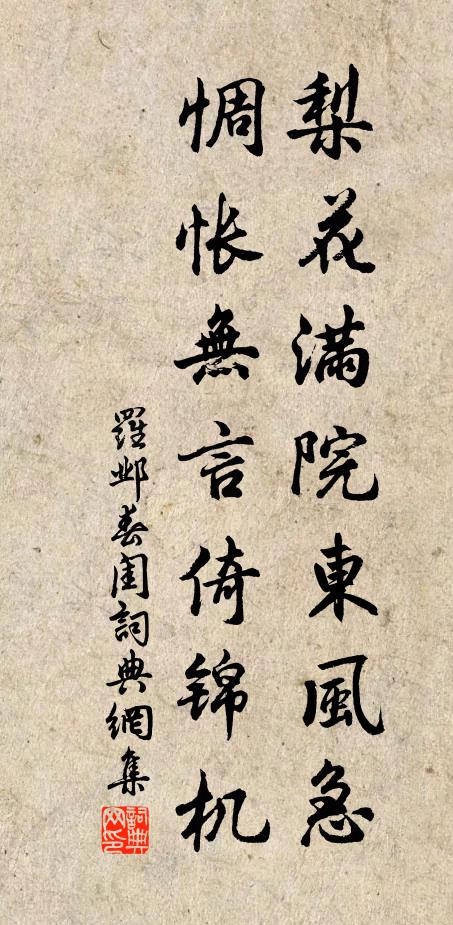 梨花滿院東風急
惆悵無言倚錦机
羅邺春閨詞典網集
詞典網印